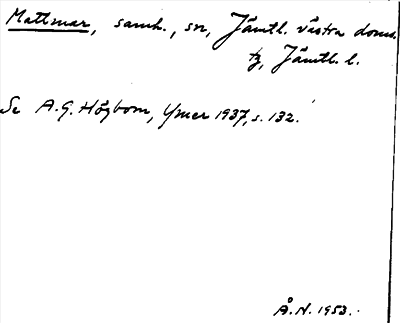 Mattmar, samh., sn, Jämtl. västra doms.
tg, Jämtl. l.
Se A.G. Högbom, Ymer 1937, s. 132.
Å.N. 1953.